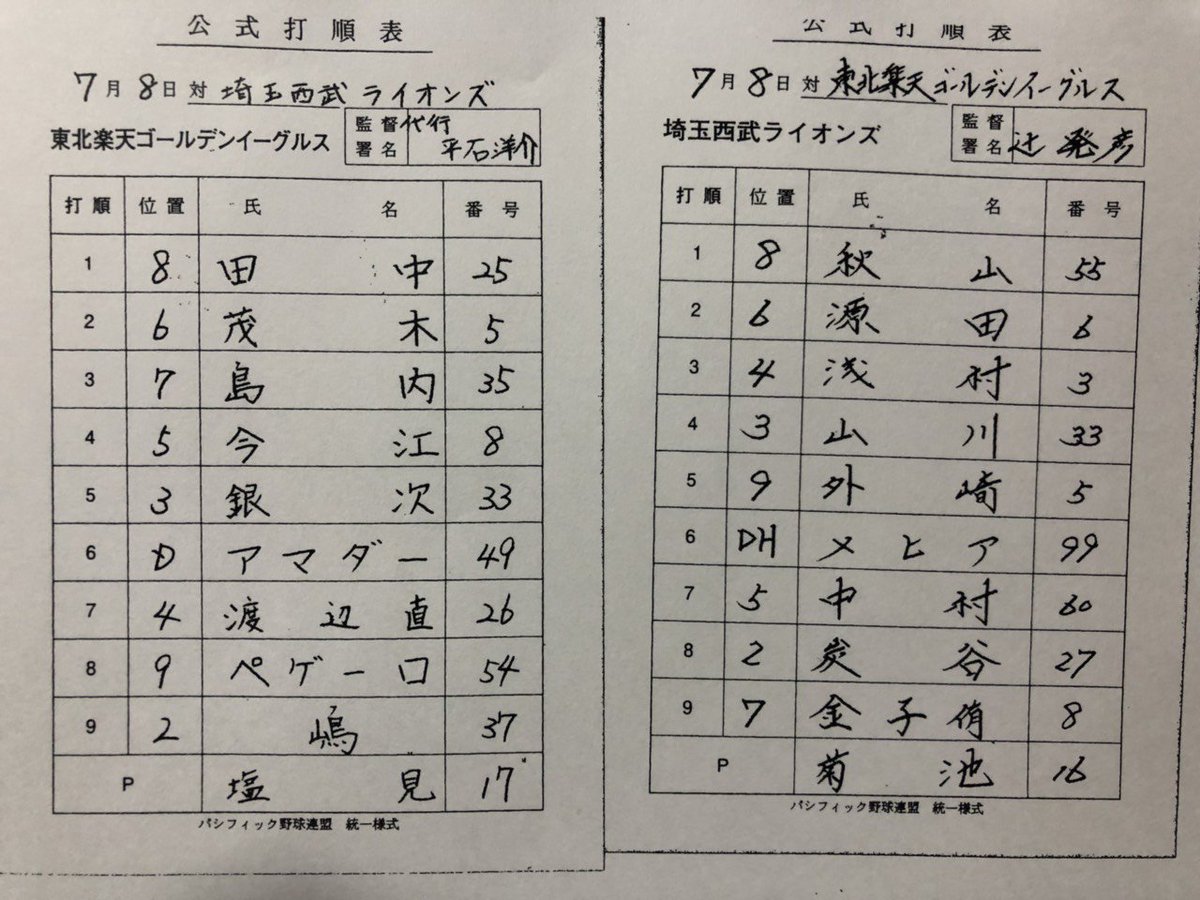 公式打順表
7月8日 対 埼玉西武ライオンズ
東北楽天ゴールデンイーグルス 監督署名 代行 平石洋介
打順 位置 氏名 番号
1 8 田中 25
2 6 茂木 5
3 7 島内 35
4 5 今江 8
5 3 銀次 33
6 D アマダー 49
7 4 渡辺直 26
8 9 ペゲーロ 54
9 2 嶋 37
P 塩見 17
パシフィック野球連盟 統一様式
公式打順表
7月8日 対 東北楽天ゴールデンイーグルス
埼玉西武ライオンズ 監督署名 辻発彦
打順 位置 氏名 番号
1 8 秋山 55
2 6 源田 6
3 4 浅村 3
4 3 山川 33
5 9 外崎 5
6 DH メヒア 99
7 5 中村 60
8 2 炭谷 27
9 7 金子侑 8
P 菊池 16
パシフィック野球連盟 統一様式